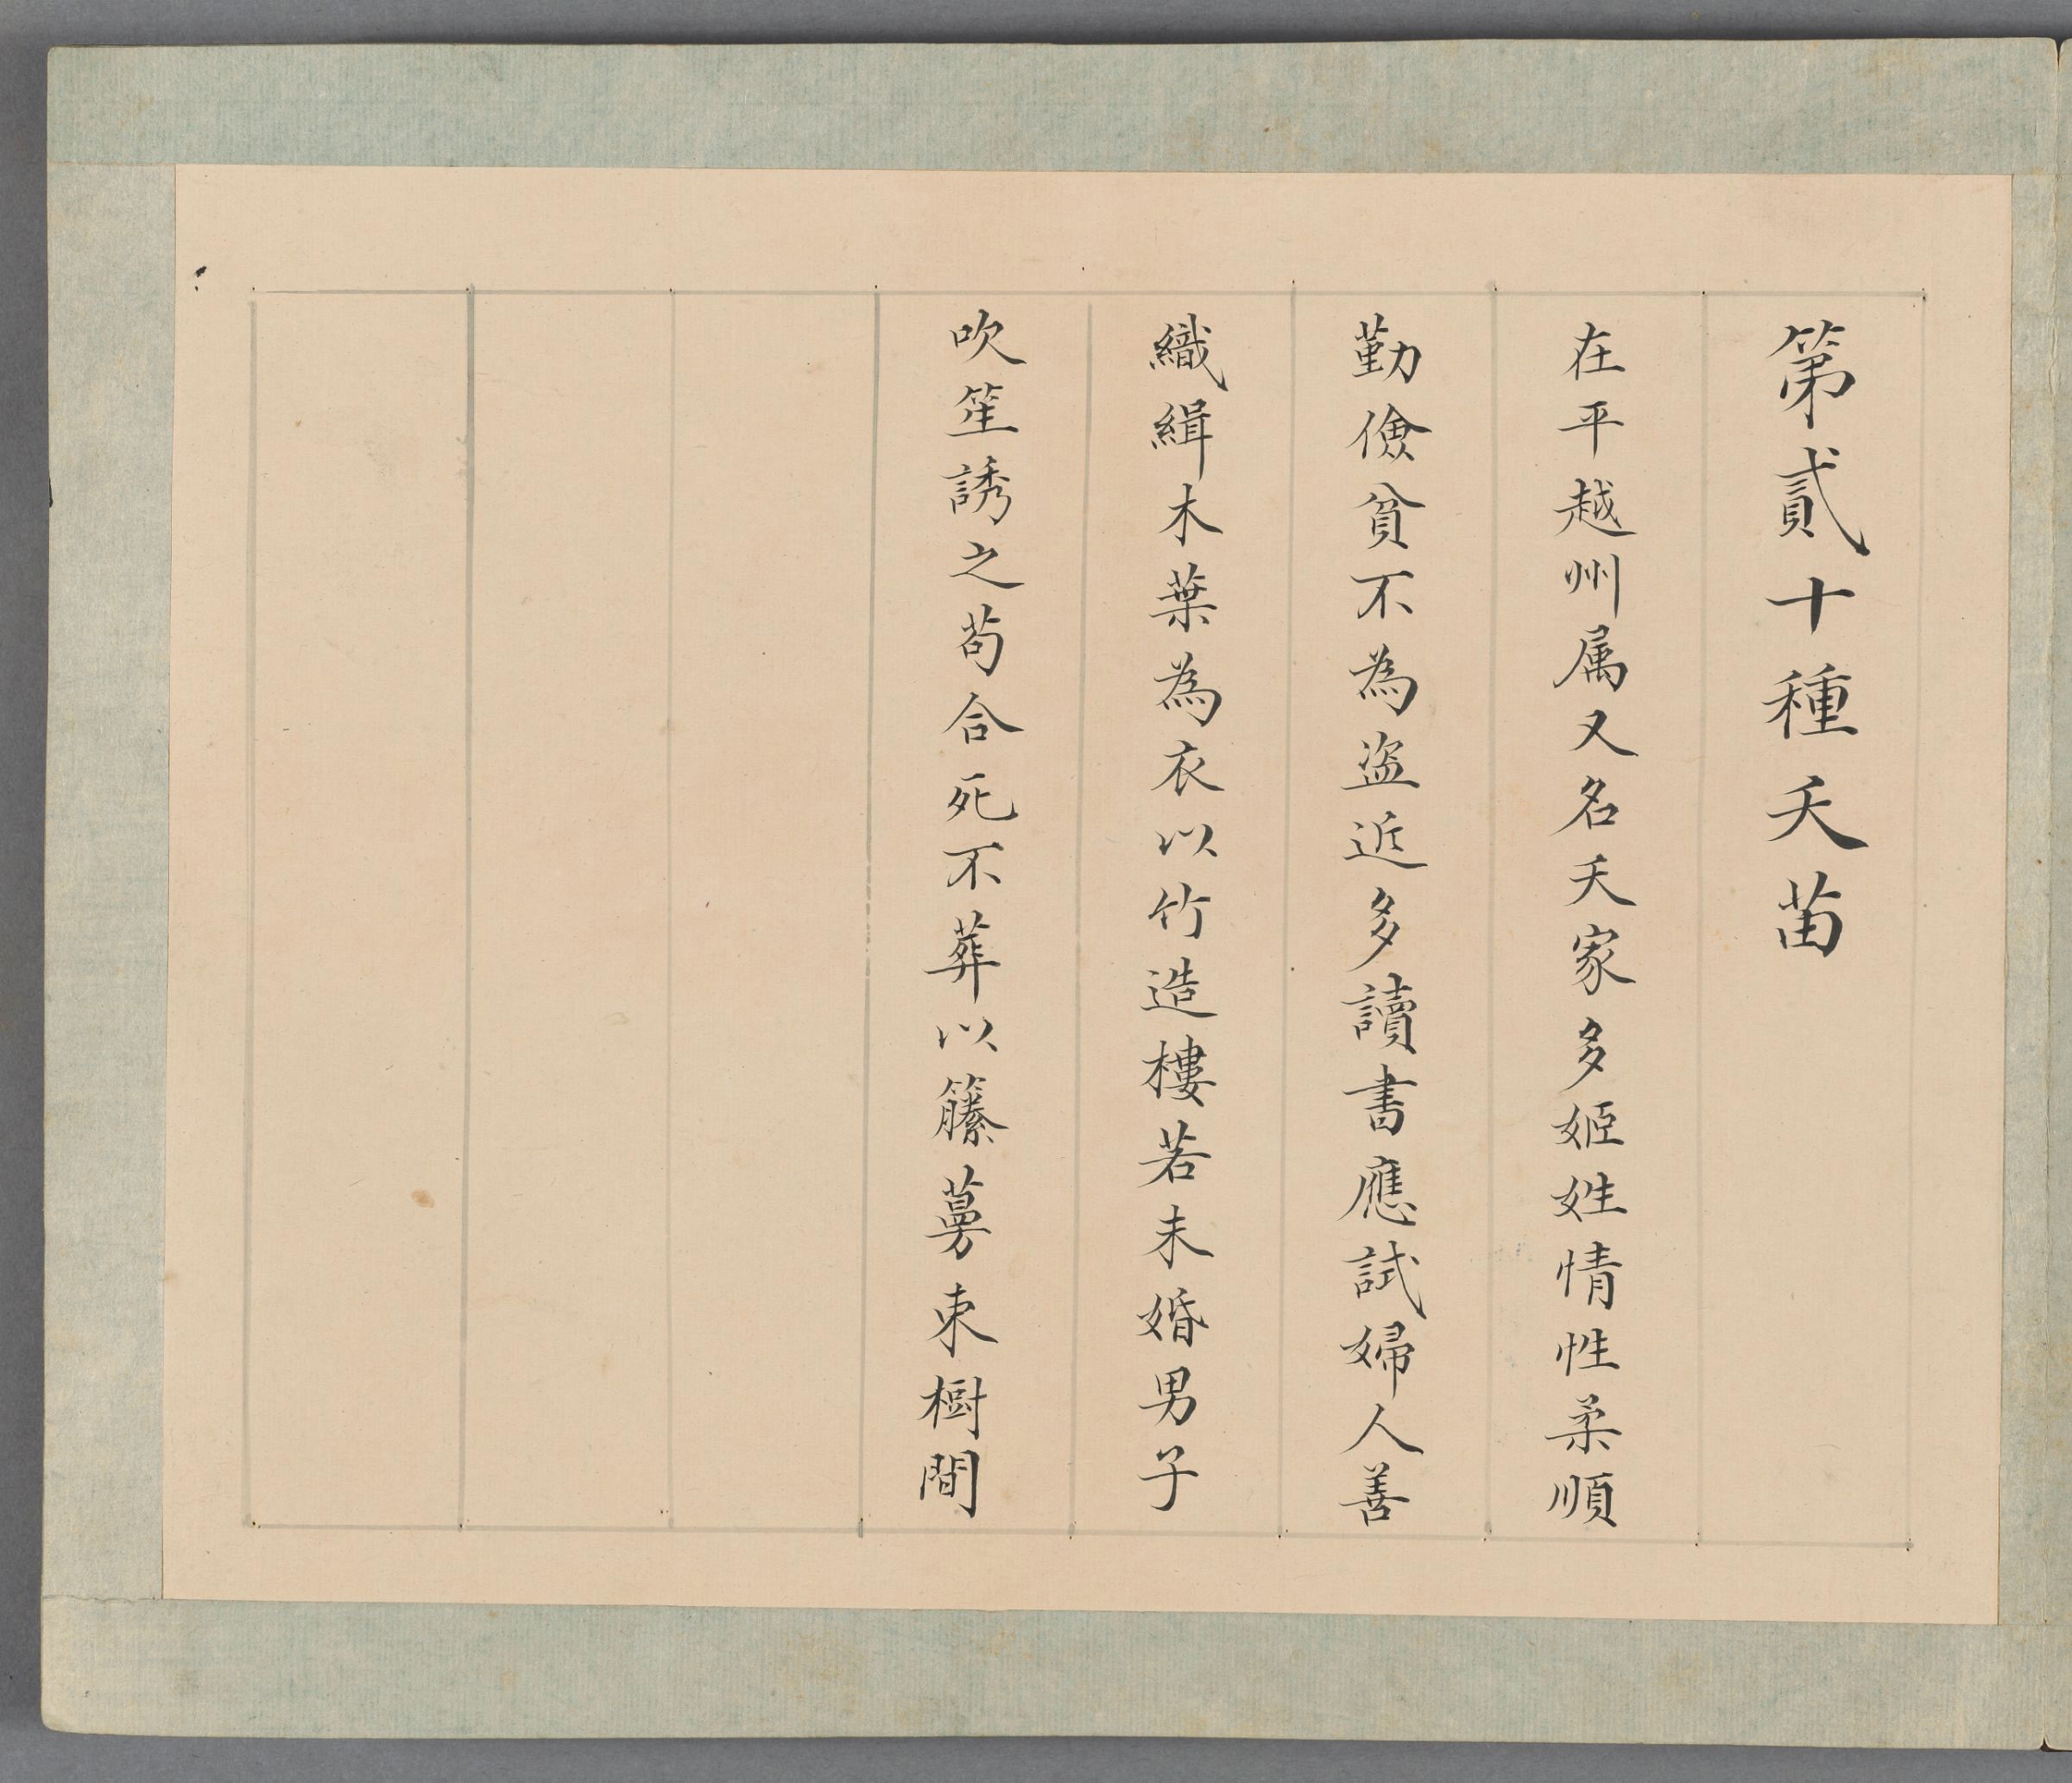 第貳十種夭苗
在平越州属又名夭家多姬姓情性柔順
勤儉貧不為盗近多讀書應試婦人善
織緝木葉為衣以竹造樓若未婚男子
吹笙誘之苟合死不葬以籐蔓束樹間